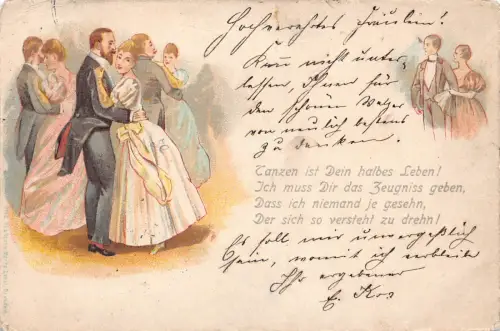 Hochverehrtes Fräulein!
Kann nicht unter-
lassen, Ihnen für
den schönen Walzer
von neulich bestens
zu danken.
Tanzen ist Dein halbes Leben!
Ich muss Dir das Zeugniss geben,
Dass ich niemand je gesehn,
Der sich so versteht zu drehn!
Es soll mir unvergeßlich
sein, womit ich verbleibe
Ihr ergebener
E. Kos